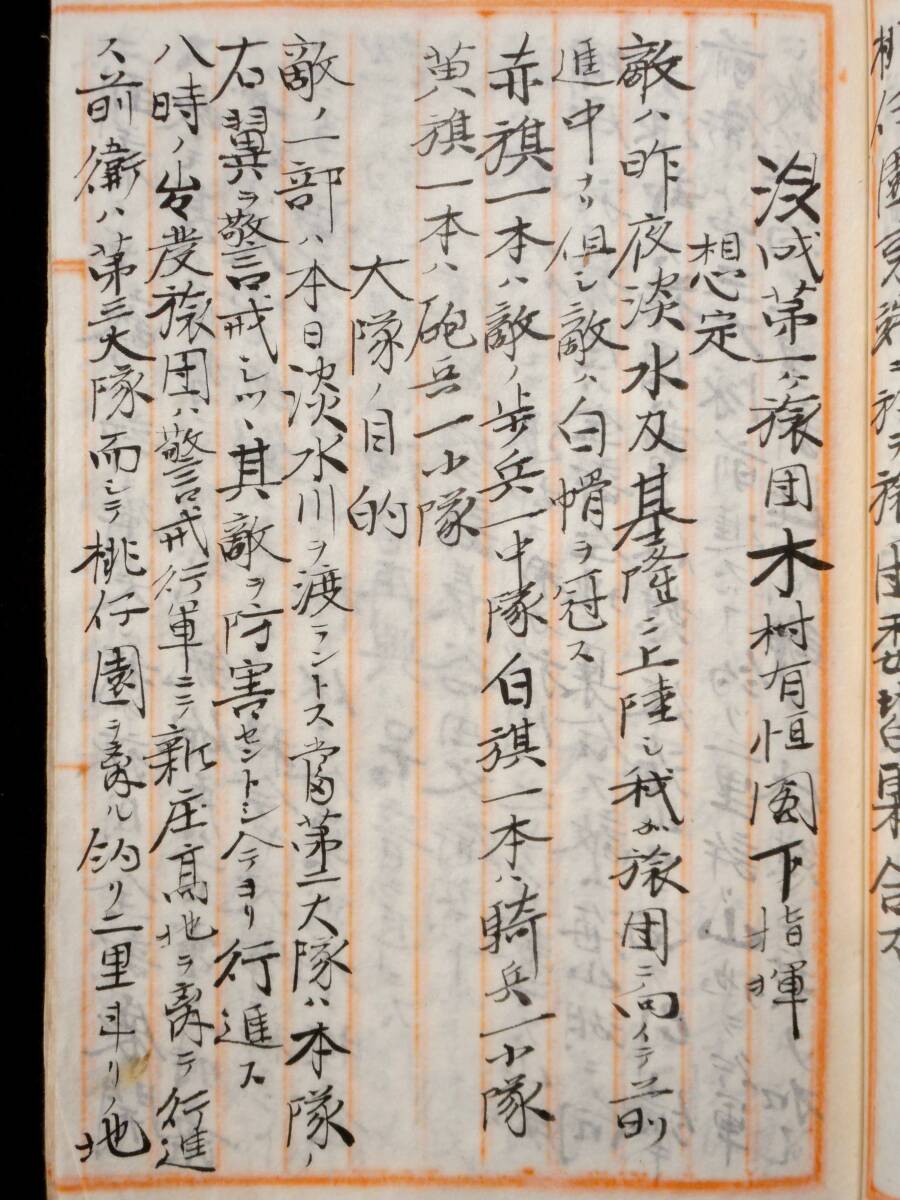 混成第一ヶ旅団木村有恒閣下指揮
想定
敵ハ昨夜淡水及基隆ニ上陸シ我カ旅団ニ向イテ前
進中ナリ但シ敵ハ白帽ヲ冠ス
赤旗一本ハ敵ノ歩兵一中隊白旗一本ハ騎兵一小隊
黄旗一本ハ砲兵一小隊
大隊ノ目的
敵ノ一部ハ本日淡水川ヲ渡ラントス當第二大隊ハ本隊ノ
右翼ヲ警戒シツヽ其敵ヲ防害セントシ今ヨリ行進ス
八時ノ出發旅団ハ警戒行軍ニテ新庄高地ヲ登テ行進
ス前衛ハ第三大隊而シテ桃仔園ヲ ル約リ二里斗リノ地